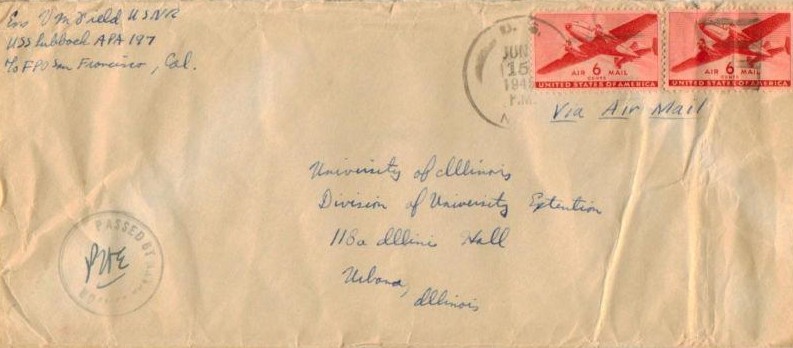 Ens V M Field USNR
USS Lubbock APA 197
c/o FPO San Francisco, Cal.
U. S.
JUN
15
194
P.M.
AIR 6 MAIL
CENTS
UNITED STATES OF AMERICA
AIR 6 MAIL
CENTS
UNITED STATES OF AMERICA
Via Air Mail
University of Illinois
Division of University Extention
118a Illini Hall
Urbana,
Illinois
PASSED BY